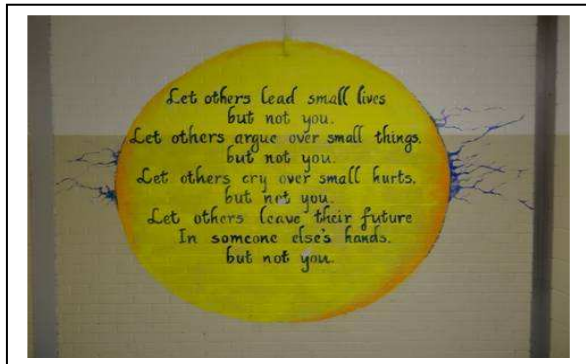 Let others lead small lives
but not you.
Let others argue over small things.
but not you.
Let others cry over small hurts.
but not you.
Let others leave their future
In someone else's hands.
but not you.